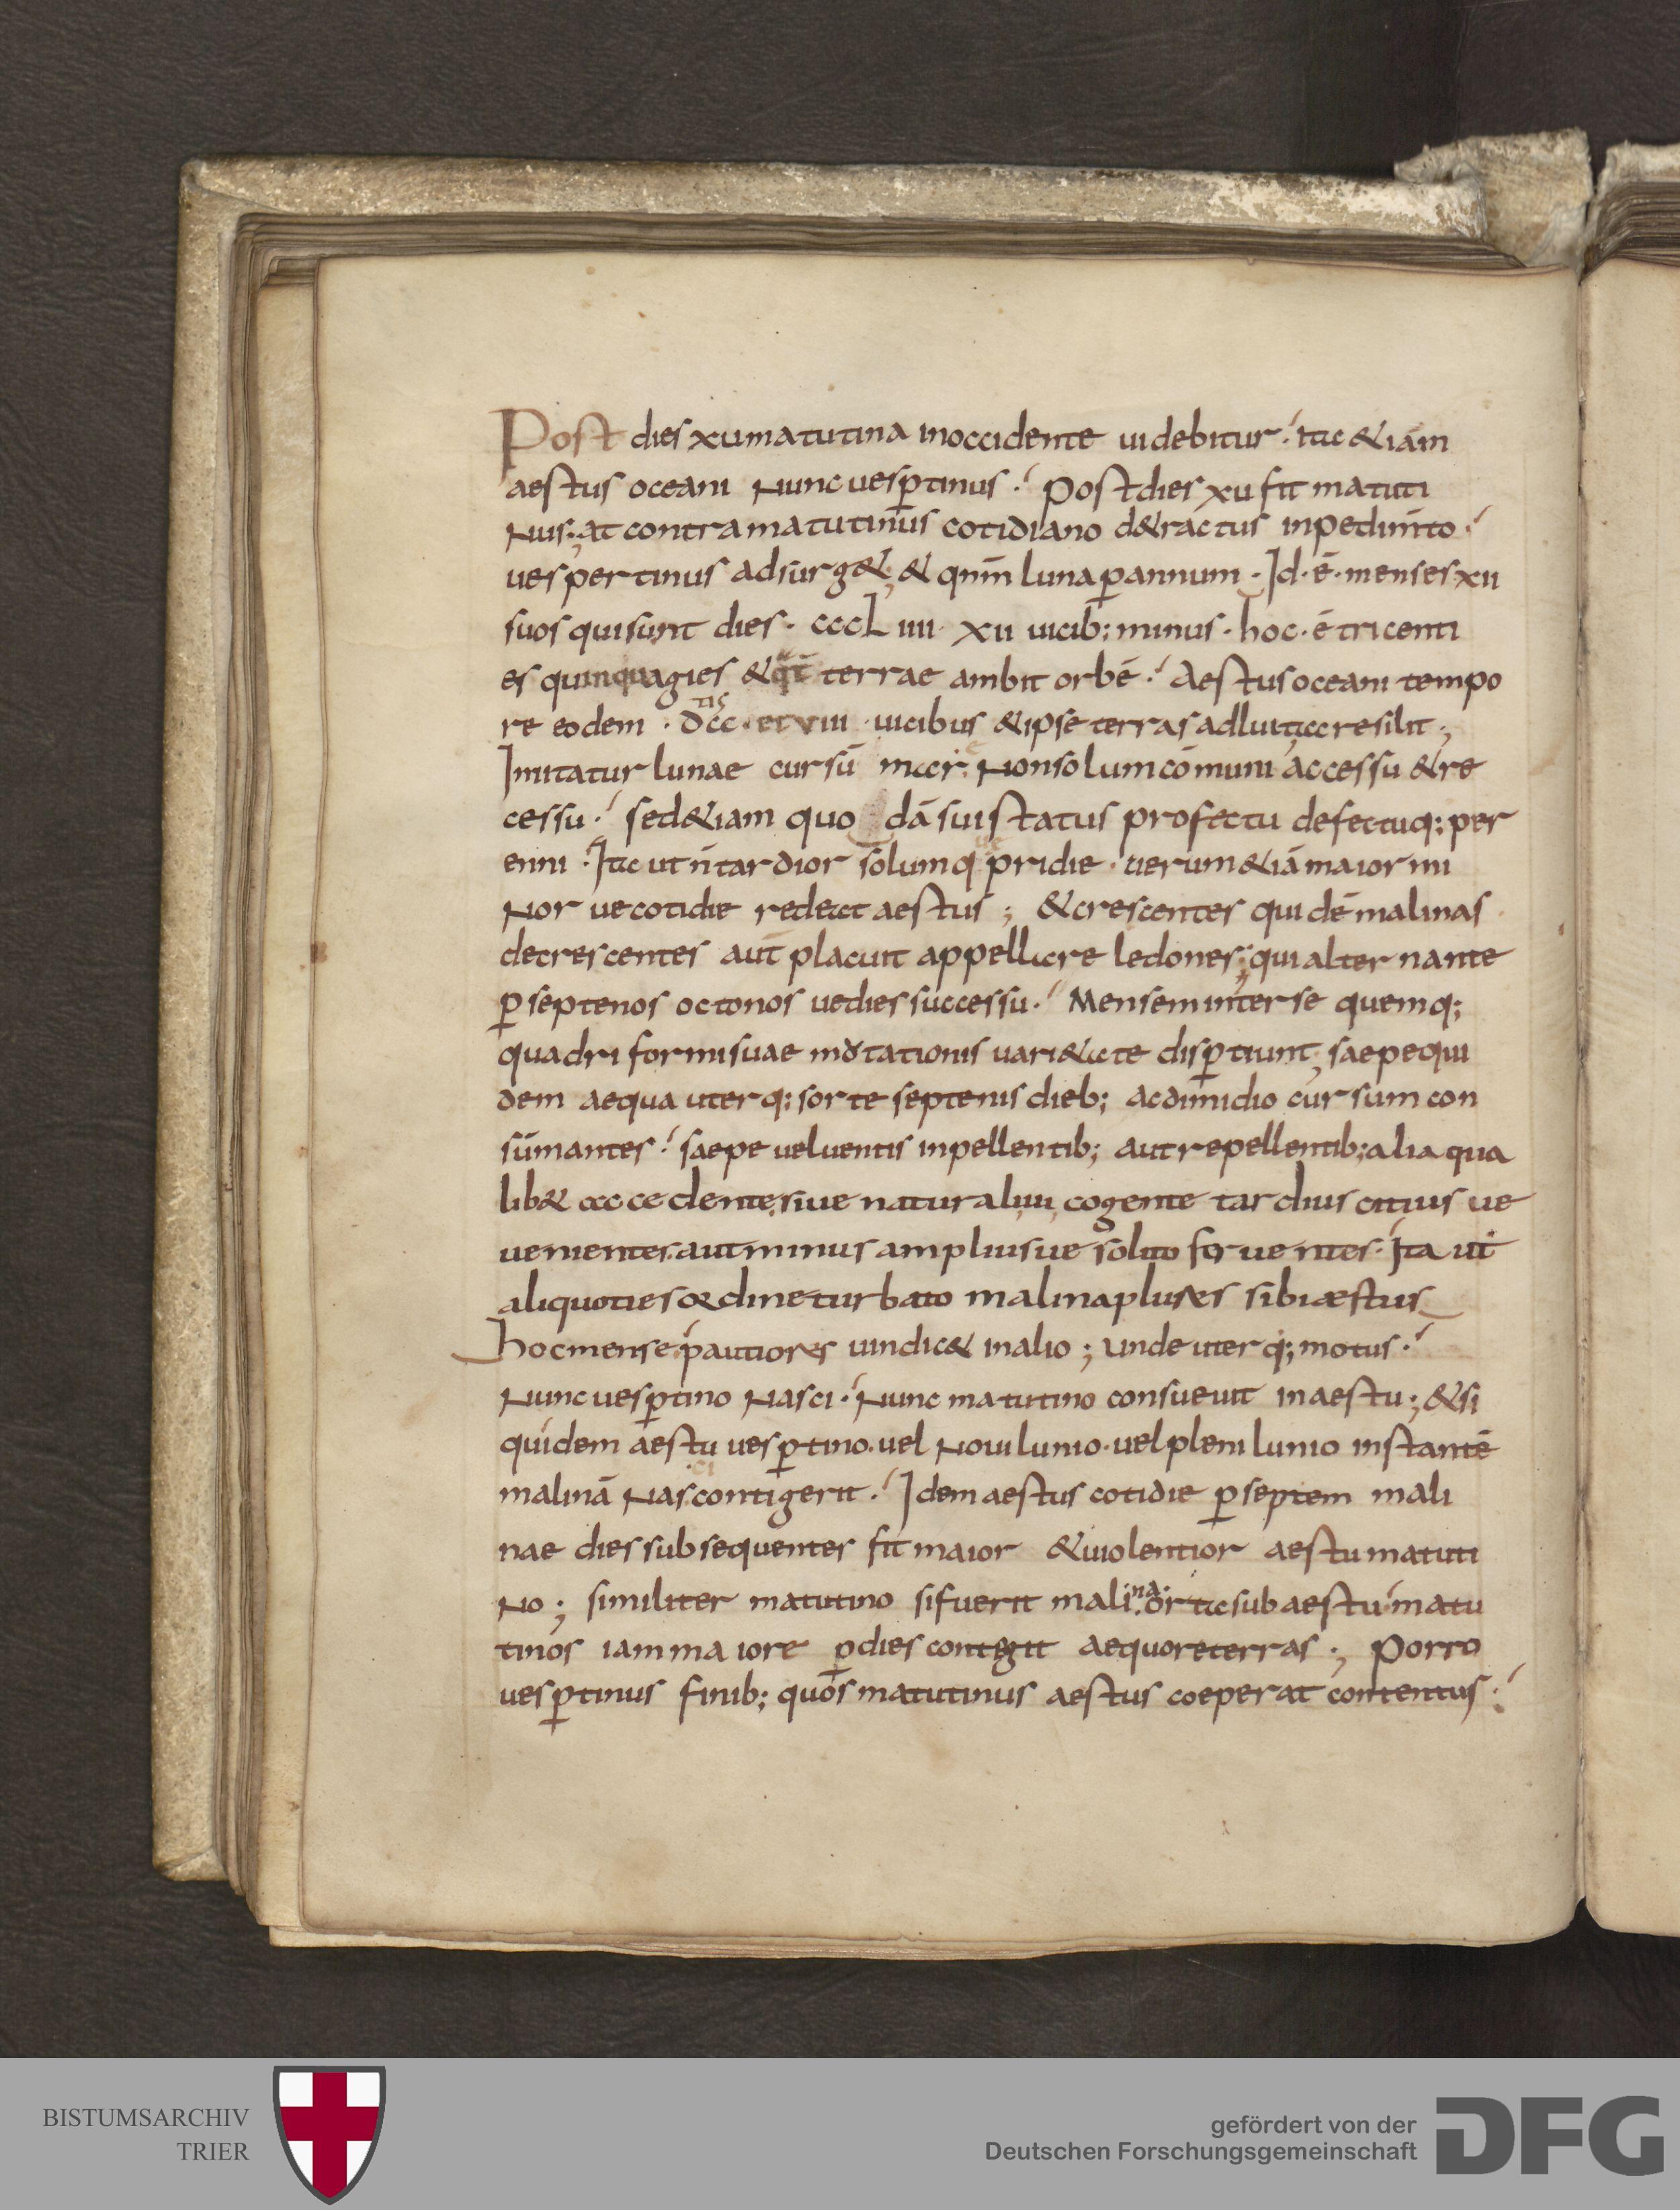 Post dies xu matutina inoccidente uidebitur· Ita &iám
aestus oceani Nunc uesꝑtinus· post dies xu fit matuti
Nus; at contra matutinus cotidiano d&ractus inpedim̄to·
uespertinus adsurg&; & qm̄ luna ꝑannum· Id·ē·menses xii
suos qui sunt dies· cccL iiii xii uicib; minus· hoc·ē tricenti
es quinquagies & terrae ambit orbē· Aestus oceani tempo
re eodem · dcc·et viii· uicibus &ipse terras adluit; ac resilit·;
Imitatur lunae cursū mar& Non solum cōmuni accessu &re
cessu· sed&iam quo dā sui status profectu defectuq; per
enni· Ita ut ń tardior solum q pridie· uerum&iā maior mi
Nor ue cotidie redeat aestus; &crescentes quidē malinas
decrescentes aut̄ placuit appellare ledones; qui alternante
ꝑ septenos octonos ue dies successu· Mensem inter se quemq;
quadriformi suae mutationis uari&ate disꝑtiunt; saepe qui
dem aequa uterq; sorte septenis dieb; ac dimidio cursum con
sūmantes· saepe uel uentis inpellentib; aut repellentib; alia qua
lib& accedente, siue naturali, ui, cogente tardius citius ue
uenientes. aut minus amplius ue solito feruentes· Ita ut
aliquoties ordine turbato malina plures sibi æstus
hoc mense pautiores uindic& in alio; unde uterq; motus·
Nunc uesꝑtino Nasci· Nunc matutino consueuit in aestu; &si
quidem aestu uesꝑtino· uel Nouilunio· uel plenilunio instantē
ci
malinā Nas contigerit· Idem aestus cotidie ꝑ septem mali
nae dies subsequentes fit maior &uiolentior aestu matuti
No; similiter matutino si fuerit malina· orta sub aestu matu
tinós iam maiore ꝑ dies contegit aequore terras·; Porro
uesꝑtinus finib; quós matutinus aestus coeperat contentus·
BISTUMSARCHIV
TRIER
gefördert von der
Deutschen Forschungsgemeinschaft
DFG